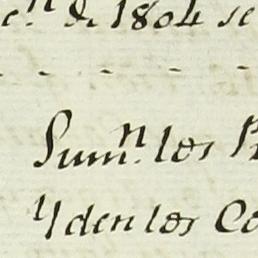 en. de 1804 se
Sumn. los P
Yden los Co